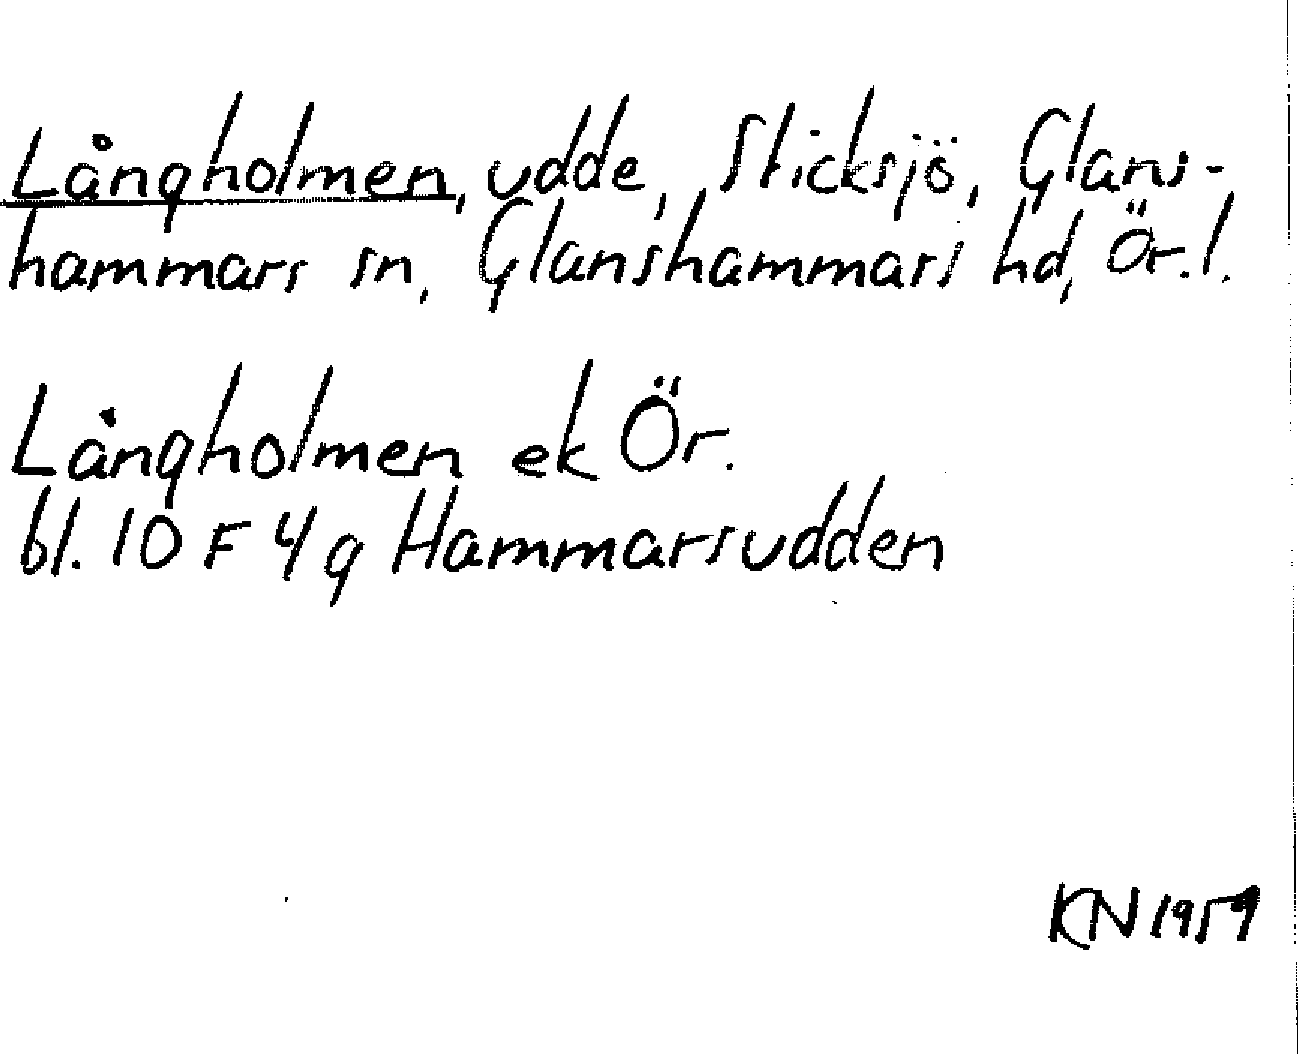 Långholmen, udde, Sticksjö, Glans-
hammars sn, Glanshammars hd, Ör.l.
Långholmen ek Ör.
bl. 10 F 4 g Hammarsudden
KN 1959